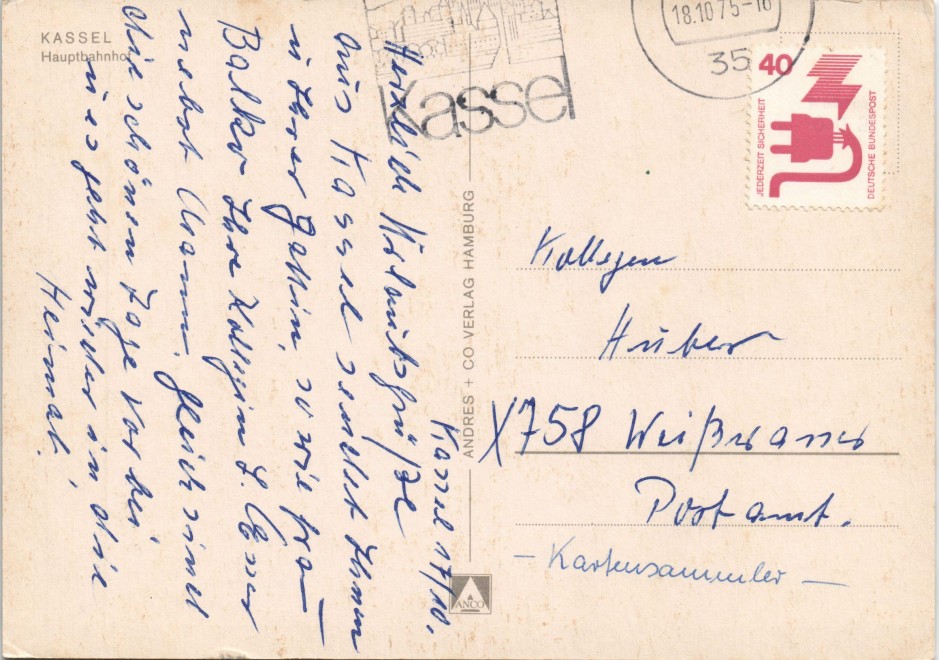 KASSEL
Hauptbahnhof
Kassel
18.10.75-16
35
40
JEDERZEIT SICHERHEIT
DEUTSCHE BUNDESPOST
ANDRES + CO VERLAG HAMBURG
ANCO
Kassel 17/10.
Herzlich Urlaubsgrüße
aus Kassel sendet Ihnen
u Ihrer Gattin, sowie Frau
Balko Ihre Kollegin L.
nebst Mann. Gleich sind
die schönen Tage vorbei
u es geht wieder in die
Heimat.
Kollegen
Huber
X758 Weißwasser
Postamt.
- Kartensammler -